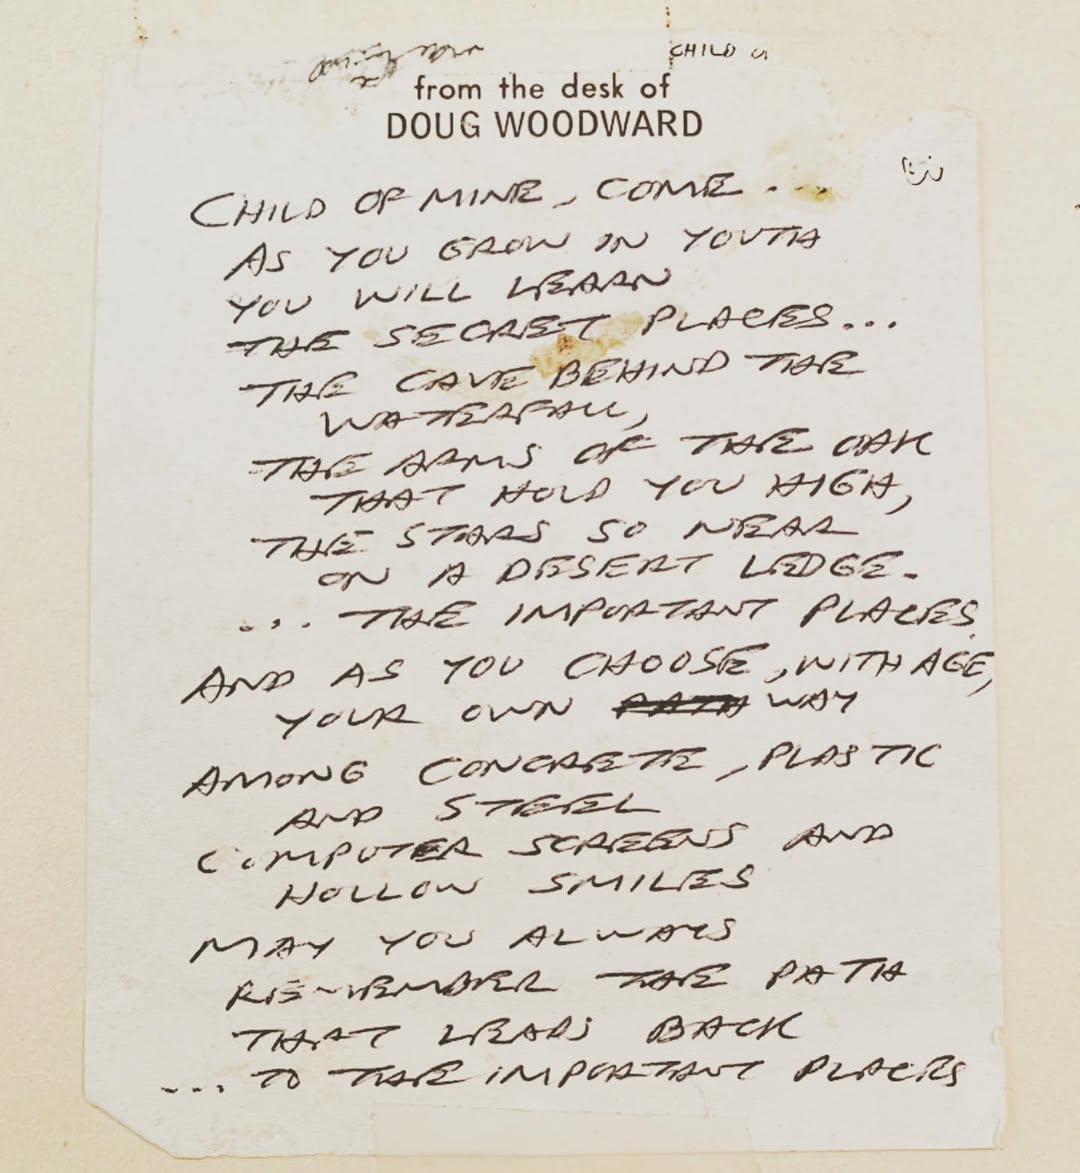 CHILD O
from the desk of
DOUG WOODWARD
CHILD OF MINE, COME...
AS YOU GROW IN YOUTH
YOU WILL LEARN
THE SECRET PLACES...
THE CAVE BEHIND THE
WATERFALL,
THE ARMS OF THE OAK
THAT HOLD YOU HIGH,
THE STARS SO NEAR
ON A DESERT LEDGE.
... THE IMPORTANT PLACES.
AND AS YOU CHOOSE, WITH AGE,
YOUR OWN PATH WAY
AMONG CONCRETE, PLASTIC
AND STEEL
COMPUTER SCREENS AND
HOLLOW SMILES
MAY YOU ALWAYS
REMEMBER THE PATH
THAT LEADS BACK
... TO THE IMPORTANT PLACES